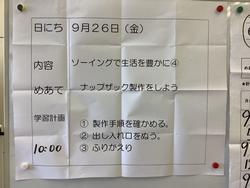 日にち 9月26日(金)
内容 ソーイングで生活を豊かに④
めあて ナップザック製作をしよう
学習計画 ① 製作手順を確かめる。
10:00 ② 出し入れ口をぬう。
③ ふりかえり